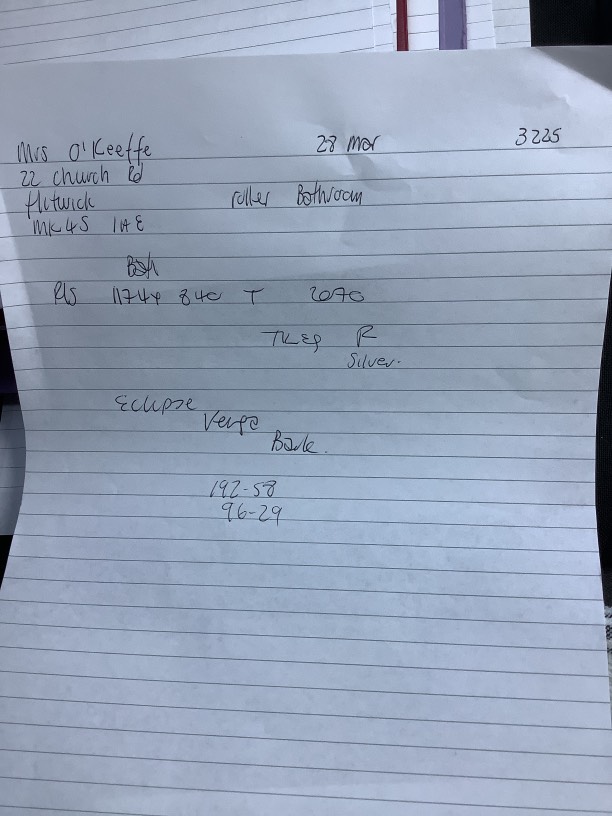 Mrs O'Keeffe 28 Mar 3225
22 Church Rd
Flitwick roller Bathroom
MK45 1AE
Bath
1174x 840 T 2070
R
Silver.
Eclipse
192-58
96-29